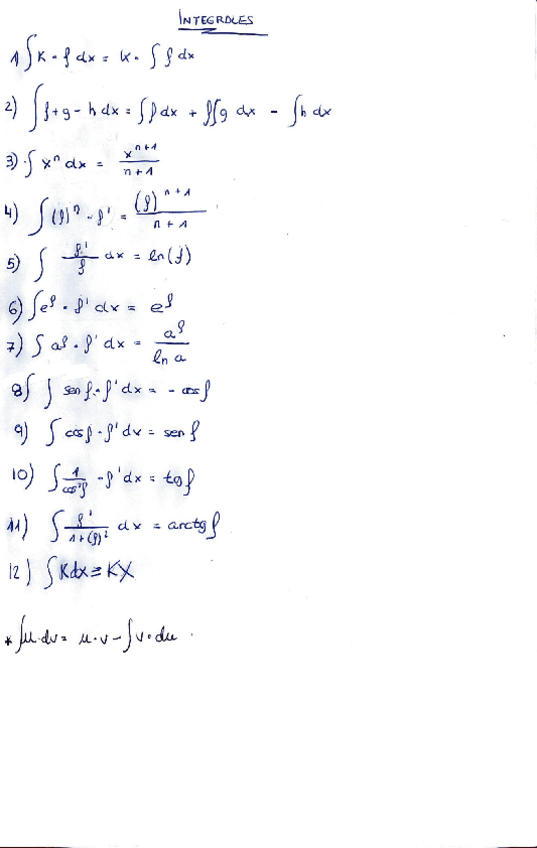 INTEGRALES
1) ∫ K · f dx = K · ∫ f dx
2) ∫ f + g - h dx = ∫ f dx + ∫ g dx - ∫ h dx
3) ∫ x^n dx = x^(n+1) / (n+1)
4) ∫ (f)^n · f' = (f)^(n+1) / (n+1)
5) ∫ f'/f dx = ln(f)
6) ∫ e^f · f' dx = e^f
7) ∫ a^f · f' dx = a^f / ln a
8) ∫ sen f · f' dx = - cos f
9) ∫ cos f · f' dx = sen f
10) ∫ 1/cos²f · f' dx = tg f
11) ∫ f' / (1+(f)²) dx = arctg f
12) ∫ K dx = KX
* ∫ u · dv = u · v - ∫ v · du